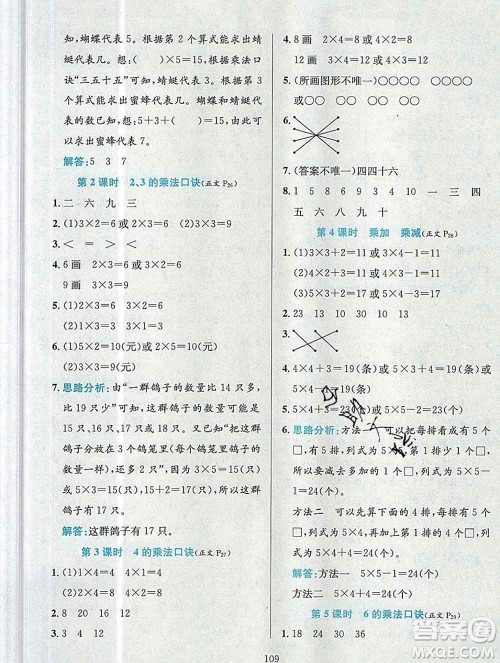 知,蝴蝶代表5。根据第2个算式能求出蜻
蜓代表几。想:5×(  )=15,根据乘法口
诀"三五十五"可知,蜻蜓代表3。根据第3
个算式能求出蜜蜂代表几。蝴蝶和蜻蜓代
表的数已知,想:5+3+(  )=15,从而可
以求出蜜蜂代表7。
解答:5 3 7
第2课时 2、3的乘法口诀(正文P26)
1. 二 六 九 三
2. (1)3×2=6 (2)3×3=9
3. < = > =
4. 6画 2×3=6或3×2=6
9画 3×3=9
5. (1)2×3=6 (2)1×3=3
(3)2×2=4
6. (1)2×5=10(元)或5×2=10(元)
(2)3×5=15(元)或5×3=15(元)
7. 思路分析:由"一群鸽子的数量比14只多,
比19只少"可知,这群鸽子可能有15只、
16只、17只或18只。又根据"把这群鸽
子分放在3个鸽笼里(每个鸽笼里鸽子的
数量一样),还剩2只",可以推出这群鸽子
有17只。
解答:这群鸽子有17只。
第3课时 4的乘法口诀(正文P27)
1. (1)1×4=4 (2)2×4=8
(3)3×4=12 (4)4×4=16
2. 8 20 16 12
3. 6 24 12
4. 8画 2×4=8或4×2=8
12画 3×4=12或4×3=12
5. (所画图形不唯一) ○○○○ ○○○○
○○ ○○ ○○ ○○
6.
7. (答案不唯一)四四十六
8. 1 5 8 六 九 十
第4课时 乘加 乘减(正文P28)
1. (1)3×3+2=11或3×4-1=11
(2)4×3+1=13或4×4-3=13
2. 23 13 10 30
3.
4. 4×4+3=19(条)或5×4-1=19(条)
5. 5×4+3=23(个)或5×5-2=23(个)
6. 思路分析:方法一 可以把每排看成有5
个□,有5排,列式为5×5,第1排少1个
□,所以要减去多加的1个□,列式为5×
5-1=24(个)。
方法二 可以先算下面的4排有多少个
□,列式为5×4,再加上第1排的4个□,
列式为5×4+4=24(个)。
解答:方法一 5×5-1=24(个)
方法二 5×4+4=24(个)
第5课时 6的乘法口诀(正文P29)
1. 18 24 30 36
109
答案圈
MXQE.COM